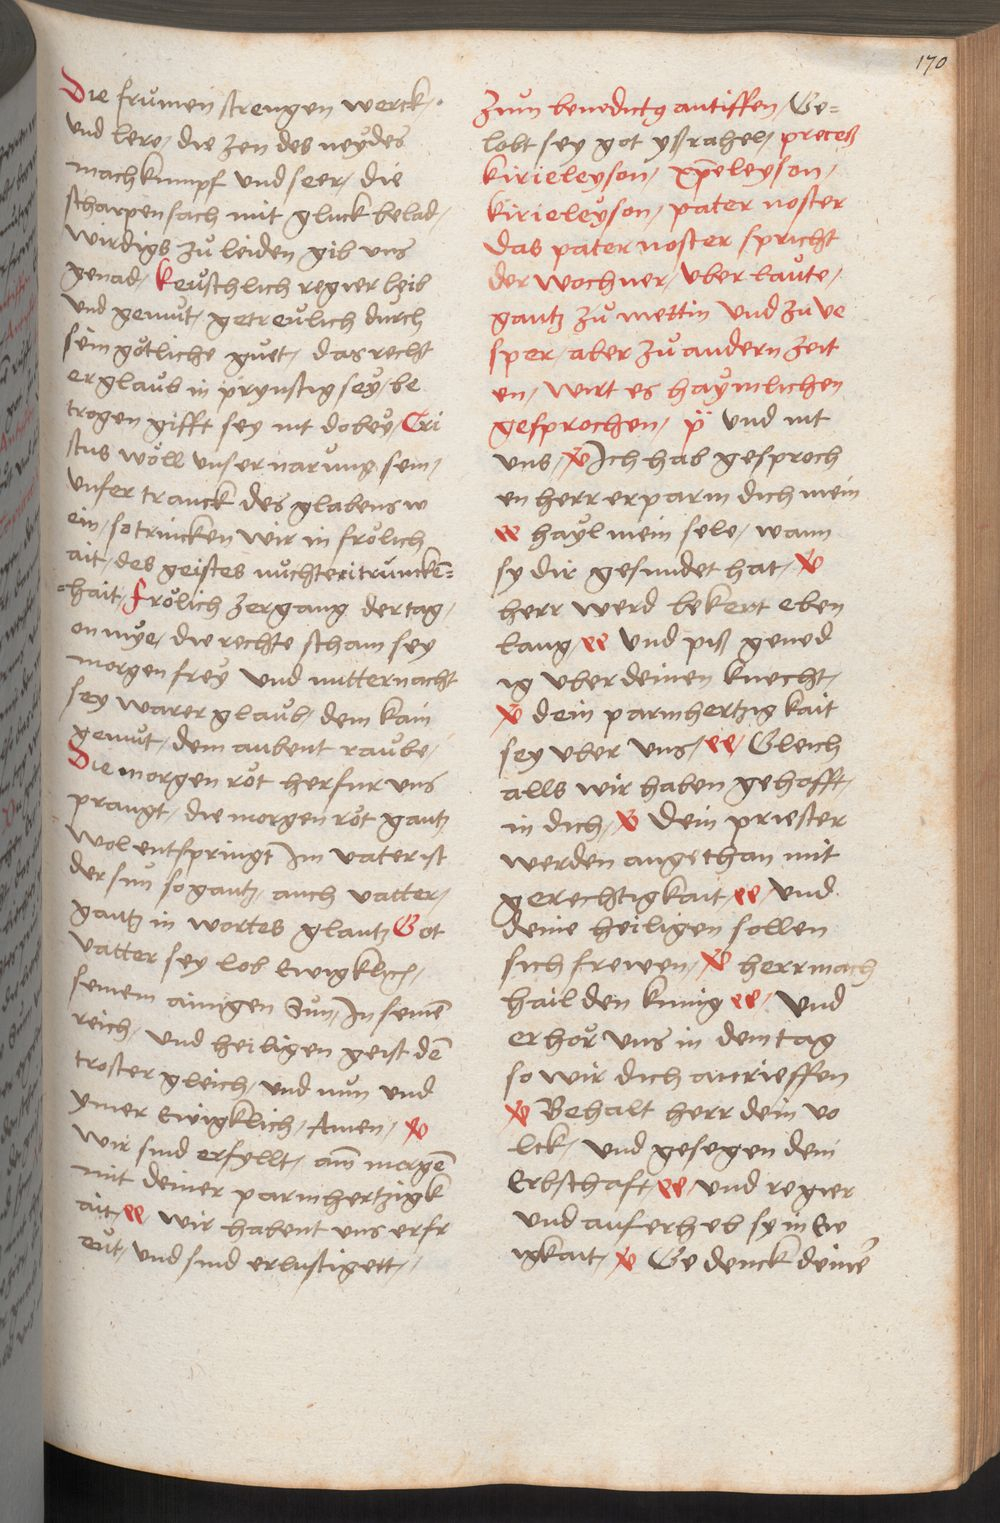 170
Die frumen strengen werck,
und lere, die zen des neydes
mach kumpf und seer, die
scharpen sach mit gluck belad,
wirdigs zů leiden gib uns
genad, keuschlich regier leib
und gemůt, getreulich durch
sein götliche guet, das recht
er glaub in prynstig sey, be
trogen gifft sey nit dobey, Cri
stus wöll unser narung sein,
unser tranck des glabens w
ein, so trincken wir in frölich
ait, des geistes nůchteri truncken=
=hait, Frölich zergang der tag,
on mye, die rechte scham sey
morgen frey und mitternacht
sey warer glaub, dem kain
gemůt, dem aubent raube,
Die morgen röt herfur uns
prangt, die morgen röt gantz
wol entspringt Im vater ist
der sun so gantz, auch vatter,
gantz in wortes glantz Got
vatter sey lob Ewigklich,
seinem ainigen Sun, In seinē
reich, und heiligen geist dē
troster gleich, und nun und
ymer Ewigklich, Amen, ℣
wir sind erfyllt, am morgē
mit deiner parmhertzigk
ait, ee, wir habent uns erfr
eut, und sind erlustigett,
Zum benedictꝰ antiffen, Ge=
lobt sey got yßrahel, preceß
kirieleyson, xp̄eleyson,
kirieleyson, pater noster
das pater noster spricht
der wochner, uber laute,
gantz zů mettin und zu ve
sper, aber zů andern zeit
en, wirt es haymlichen
gesprochen, p̈ und nit
uns, ℣ Ich hab gesproch
en herr erparm dich mein
ee hayl mein sele, wann
sy dir gesundet hat, ℣
herr werd bekert eben
lang, ee und piß gened
ig uber deinen knecht,
℣ dein parmhertzigkait
sey uber uns, ee, Gleich
alls wir haben gehofft,
in dich, ℣ Dein priester
werden angethan mit
gerechtigkait, ee, und
deine heiligen sollen
sich frewen, ℣ herr mach
hail den kunig ee, und
erhör uns in dem tag
so wir dich anrieffen
℣ Behalt herr dein vo
lck, und gesegen dein
Erbschaft, ee, und regier
und auf erheb sy in Ew
igkait, ℣ Gedenck deinē